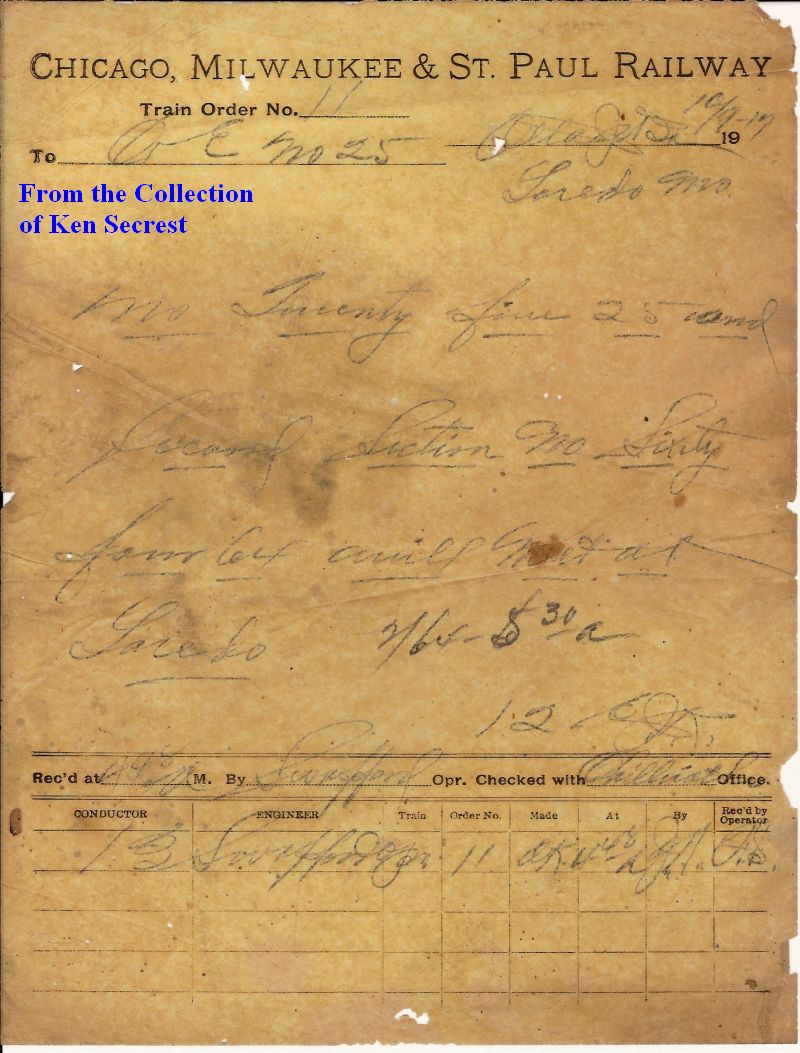 CHICAGO, MILWAUKEE & ST. PAUL RAILWAY
Train Order No. 11
10/9-17
19
To C & E No 25
Laredo Mo.
From the Collection
of Ken Secrest
No Twenty five 25 and
Second Section No Sixty
four 64 will meet at
Laredo 2/64 - 8 30 a
12
Rec'd at M. By Swofford Opr. Checked with Office.
CONDUCTOR ENGINEER Train Order No. Made At By Rec'd by Operator
Swofford 11 OK